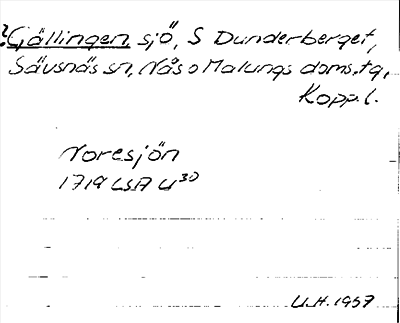 ? Gällingen sjö, S Dunderberget,
Sävsnäs sn, Nås o Malungs doms.tg,
Kopp.l.
Noresjön
1719 LSA U30
U.H. 1957